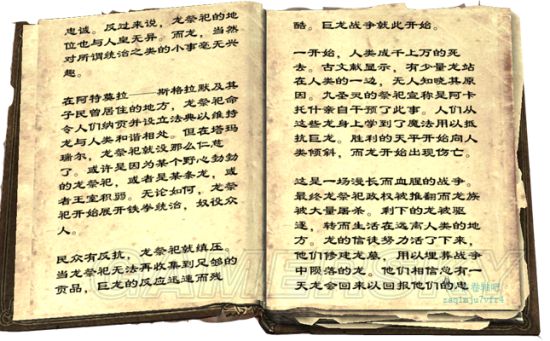 忠诚。反过来说，龙祭祀的地
位也与人皇无异。而龙，当然
对所谓统治之类的小事毫无兴
趣。
在阿特莫拉——斯格拉默及其
子民曾居住的地方，龙祭祀命
令人们纳贡并设立法典以维持
龙与人类和谐相处。但在塔玛
瑞尔，龙祭祀就没那么仁慈
了。或许是因为某个野心勃勃
的龙祭祀，或者是某条龙，或
者王室积弱。无论如何，龙祭
祀开始展开铁拳统治，奴役众
人。
民众有反抗，龙祭祀就镇压。
当龙祭祀无法再收集到足够的
贡品，巨龙的反应迅速而残
酷。巨龙战争就此开始。
一开始，人类成千上万的死
去。古文献显示，有少量龙站
在人类的一边，无人知晓其原
因。九圣灵的祭祀宣称是阿卡
托什亲自干预了此事。人们从
这些龙身上学到了魔法用以抵
抗巨龙。胜利的天平开始向人
类倾斜，而龙开始出现伤亡。
这是一场漫长而血腥的战争。
最终龙祭祀政权被推翻而龙族
被大量屠杀。剩下的龙被驱
逐，转而生活在远离人类的地
方。龙的信徒努力活了下来，
他们修建龙墓，用以埋葬战争
中陨落的龙。他们相信总有一
天龙会回来以回报他们的忠
卷轴吧
zaq1mju7vfr4
GAMERSKY